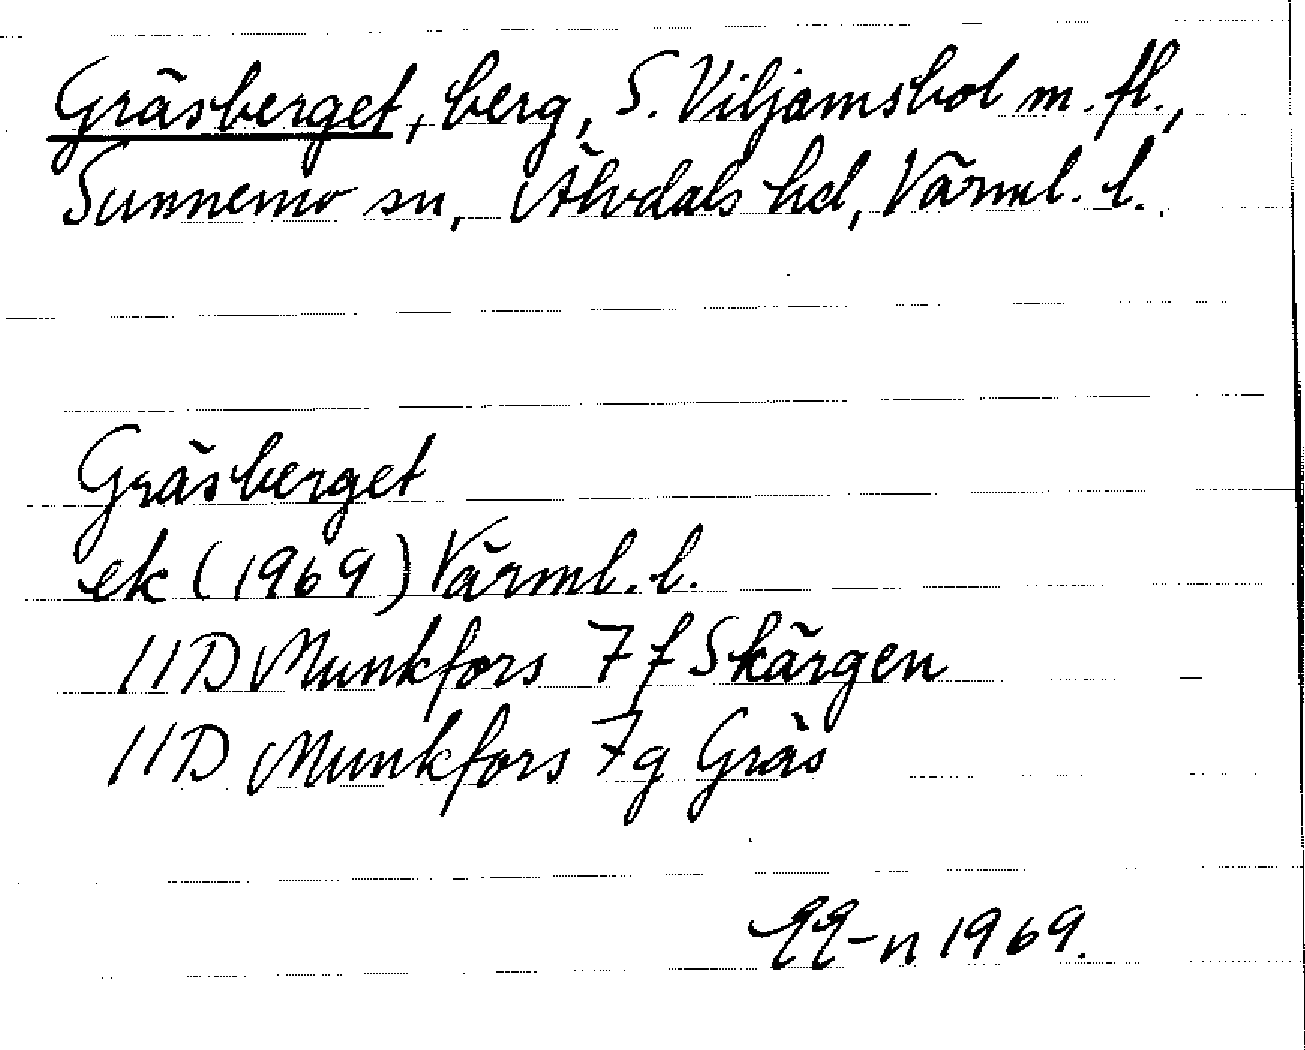 Gräsberget, berg, S. Viljamsbol m. fl.,
Sunnemo sn, Älvdals hd, Värml. l.
Gräsberget
ek (1969) Värml. l.
11D Munkfors 7f Skärgen
11D Munkfors 7g Gräs
1969.